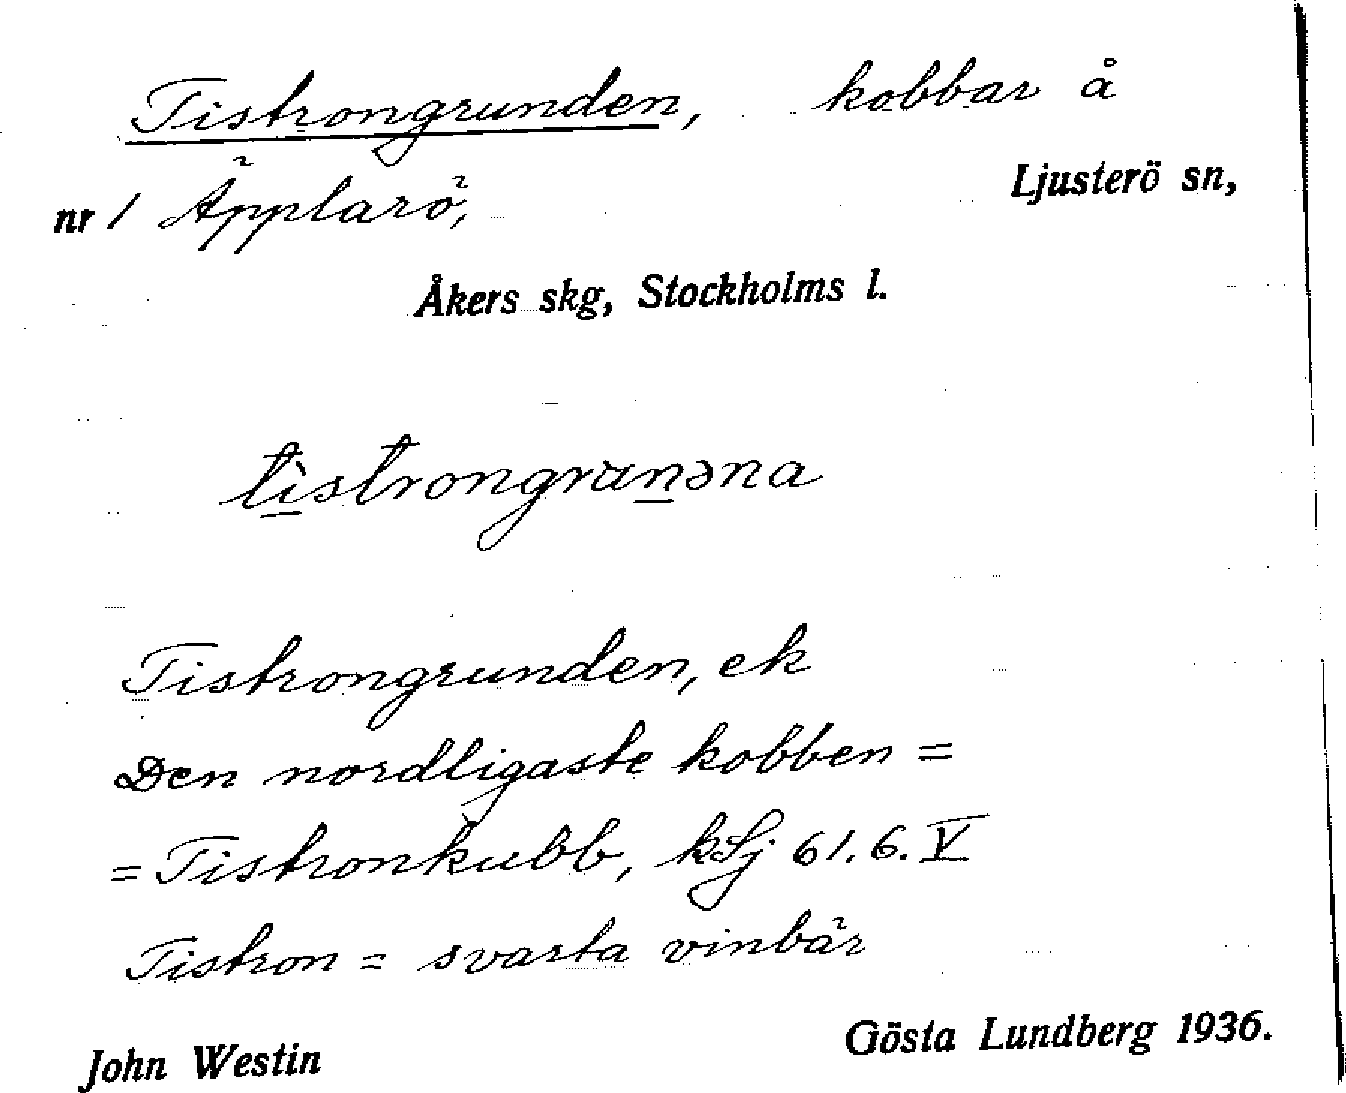 Tistrongrunden, kobbar å
nr 1 Äpplarö, Ljusterö sn,
Åkers skg, Stockholms l.
tìstrongrunəna
Tistrongrunden, ek
Den nordligaste kobben =
= Tistronkubb, kSj 61.6.V
Tistron = svarta vinbär
John Westin Gösta Lundberg 1936.